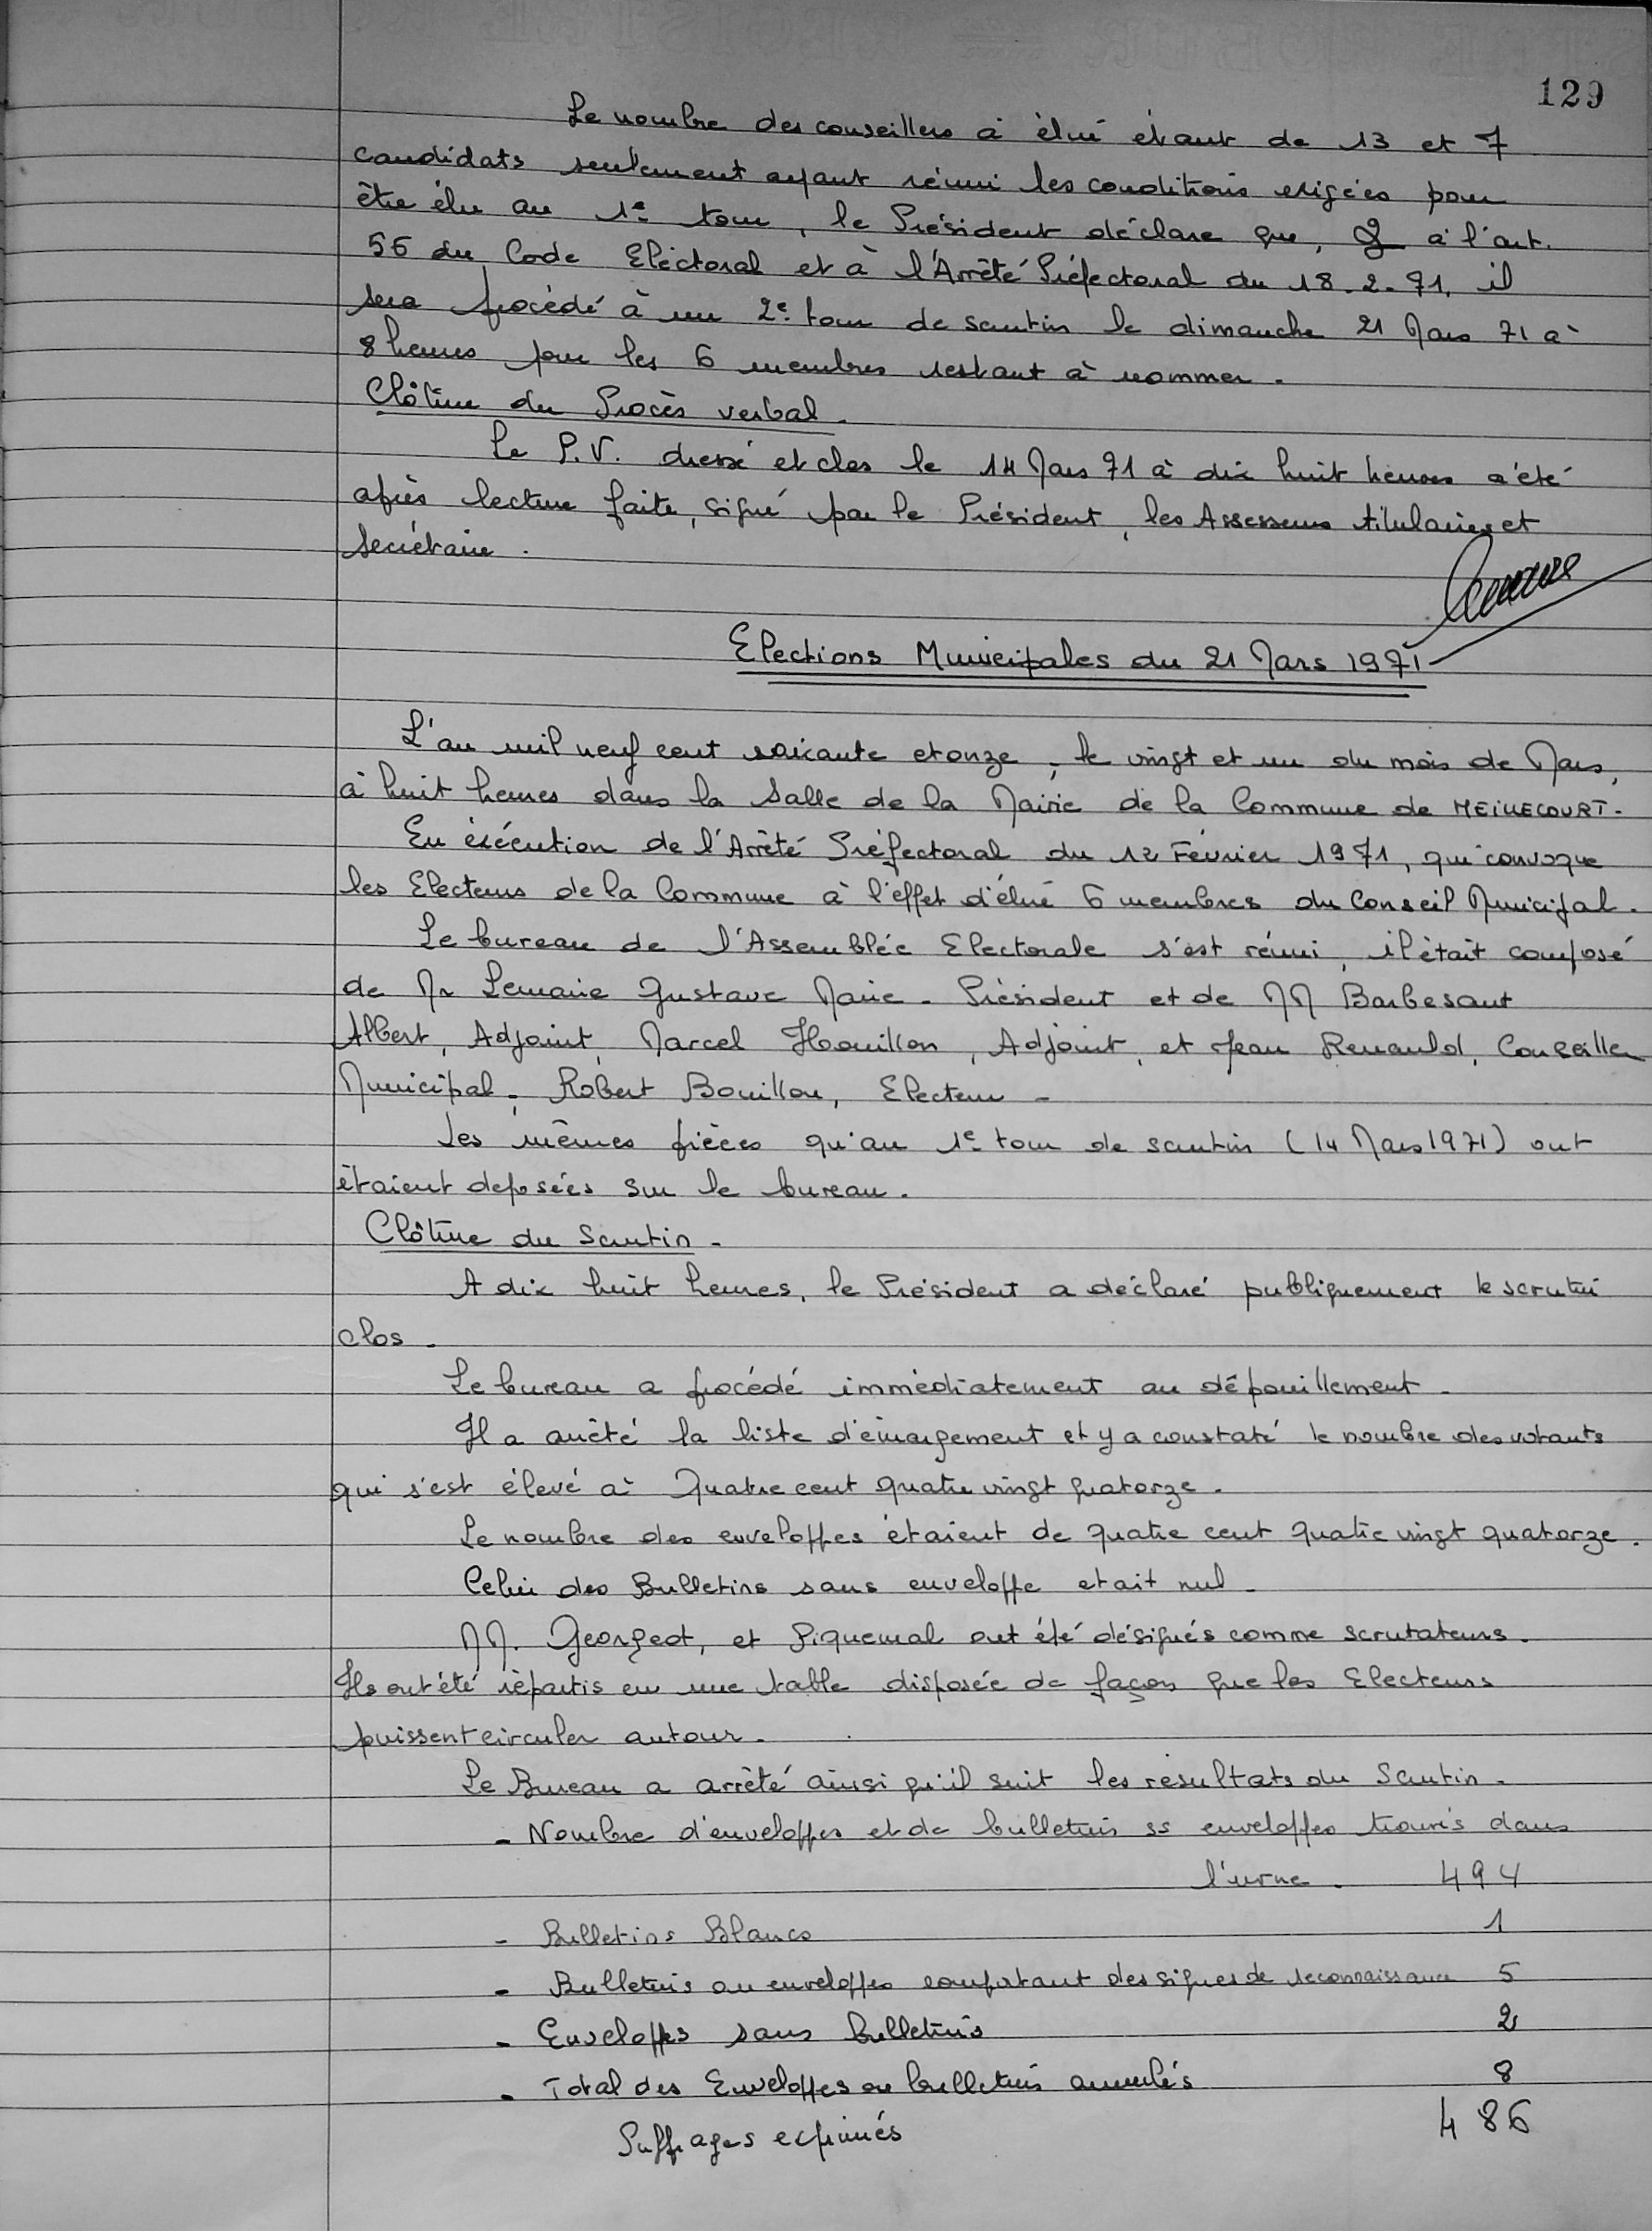 129
Le nombre des conseillers à élire étant de 13 et 7
candidats seulement ayant réuni les conditions exigées pour
être élu au 1e tour, le Président déclare que, à l'art.
56 du Code Electoral et à l'Arrêté Préfectoral du 18.2.71, il
sera procédé à un 2e tour de scrutin le dimanche 21 Mars 71 à
8 heures pour les 6 membres restant à nommer.
Clôture du Procès verbal.
Le P.V. dressé et clos le 14 Mars 71 à dix huit heures a été
après lecture faite, signé par le Président, les Assesseurs titulaires et
Secrétaire.
Elections Municipales du 21 Mars 1971
L'an mil neuf cent soixante et onze, le vingt et un du mois de Mars,
à huit heures dans la Salle de la Mairie de la Commune de
En éxécution de l'Arrêté Préfectoral du 12 Février 1971, qui convoque
les Electeurs de la Commune à l'effet d'élire 6 membres du Conseil Municipal.
Le bureau de l'Assemblée Electorale s'est réuni, il était composé
de Mr Lemaire Gustave Maire - Président et de MM Barbesant
Albert, Adjoint, Marcel Houillon, Adjoint, et Jean Renauld, Conseiller
Municipal, Robert Bouillon, Electeur -
Les mêmes pièces qu'au 1e tour de scrutin (14 Mars 1971) ont
étaient déposées sur le bureau.
Clôture du Scrutin -
A dix huit heures, le Président a déclaré publiquement le scrutin
clos.
Le bureau a procédé immédiatement au dépouillement.
Il a arrêté la liste d'émargement et y a constaté le nombre des votants
qui s'est élevé à Quatre cent quatre vingt quatorze.
Le nombre des enveloppes étaient de quatre cent quatre vingt quatorze.
Celui des Bulletins sans enveloppe etait nul.
MM. Georgeot, et Piquemal ont été désignés comme scrutateurs.
Ils ont été répartis en une table disposée de façon que les Electeurs
puissent circuler autour.
Le Bureau a arrêté ainsi qu'il suit les résultats du Scrutin.
- Nombre d'enveloppes et de bulletins ss enveloppes trouvés dans
l'urne. 494
- Bulletins Blancs 1
- Bulletins ou enveloppes comportant des signes de reconnaissance 5
- Enveloppes sans bulletins 2
- Total des Enveloppes ou bulletins annulés 8
Suffrages exprimés 486